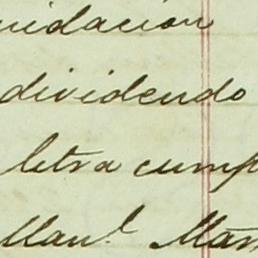 uidacion
dividendo
letra cump
Manl. Mam